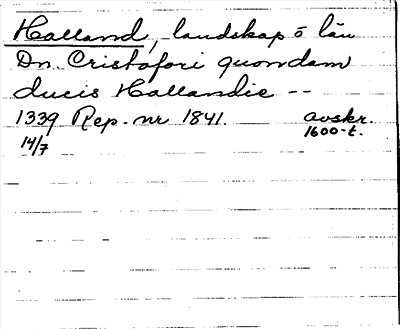 Halland, landskap o län
Dn. Cristofori quondam
ducis Hallandie --
1339 Rep. nr 1841. avskr.
14/7 1600-t.